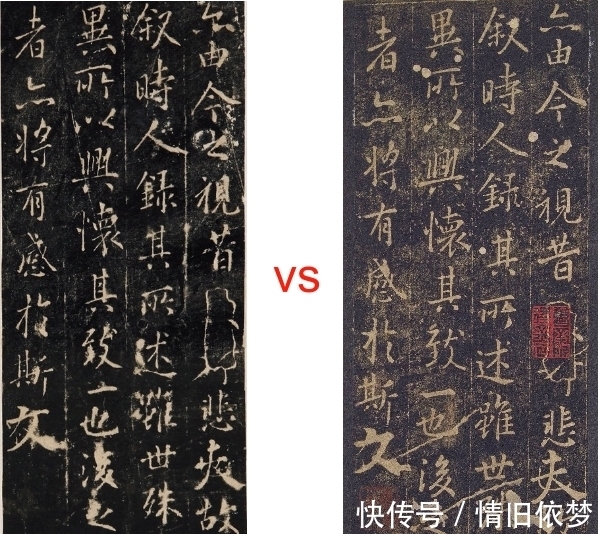 亦由今之視昔悲夫故
叙時人錄其所述雖世殊
異所以興懷其致一也後之
者亦將有感於斯文
vs
亦由今之視昔悲夫
叙時人錄其所述雖世
異所以興懷其致一也後
者亦將有感於斯文
快传号 / 情旧依梦